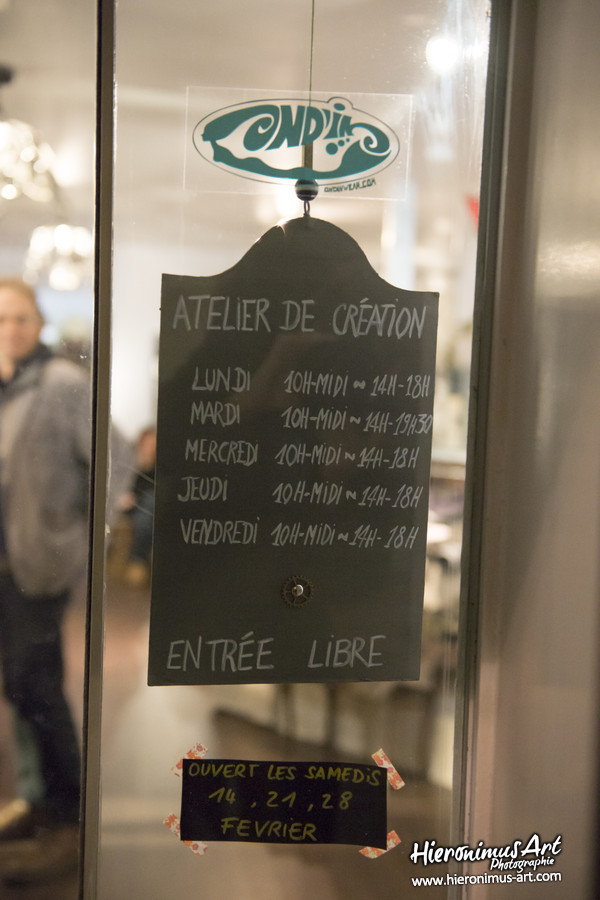 OND'IN
ONDINWEAR.COM
ATELIER DE CRÉATION
LUNDI 10H-MIDI ~ 14H-18H
MARDI 10H-MIDI ~ 14H-19H30
MERCREDI 10H-MIDI ~ 14H-18H
JEUDI 10H-MIDI ~ 14H-18H
VENDREDI 10H-MIDI ~ 14H-18H
ENTRÉE LIBRE
OUVERT LES SAMEDIS
14, 21, 28
FEVRIER
HIERONIMUSART
Photographie
www.hieronimus-art.com